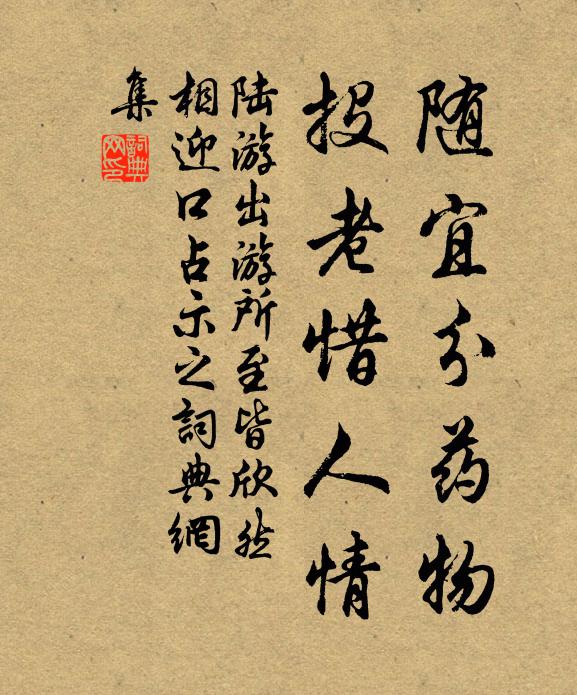 随宜分药物
投老惜人情
陆游出游所至皆欣然
相迎口占示之词典網
集
詞典
网印